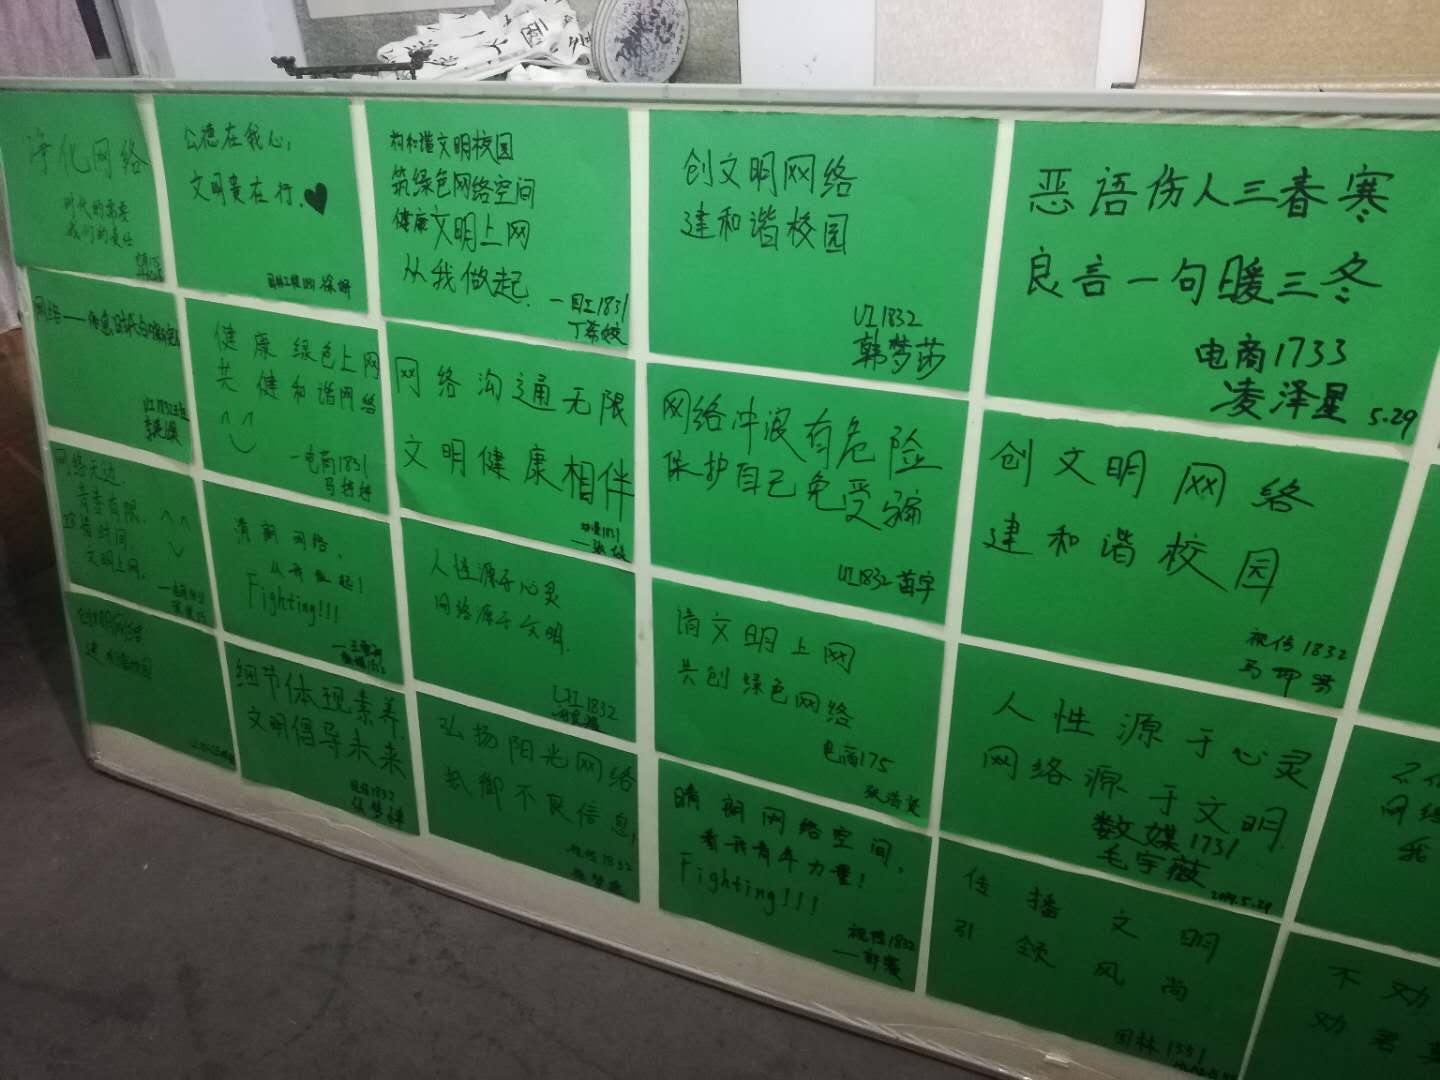 净化网络
时代的需要
我们的责任
公德在我心,
文明贵在行.
园林工程1831 徐妍
构和谐文明校园
筑绿色网络空间
健康文明上网
从我做起.
丁荔皎
创文明网络
建和谐校园
UI1832
韩梦莎
恶语伤人三春寒
良言一句暖三冬
电商1733
凌泽星 5.29
健康绿色上网
共健和谐网络
一电商1831
网络沟通无限
文明健康相伴
网络冲浪有危险
保护自己免受骗
UI1832 苗宇
创文明网络
建和谐校园
视传1832
网络无边,
青春有限,
珍惜时间,
文明上网,
清朗网络,
从我做起!
Fighting!!!
人性源于心灵
网络源于文明.
UI1832
请文明上网
共创绿色网络
电商175
人性源于心灵
网络源于文明.
数文媒1731
毛宇薇
2019.5.29
创文明网络
建和谐校园
细节体现素养,
文明倡导未来
视传1832
弘扬阳光网络
抵御不良信息!
视传1832
晴朗网络空间,
看我青年力量!
Fighting!!!
视传1832
传播文明
引领风尚
园林1331
不劝